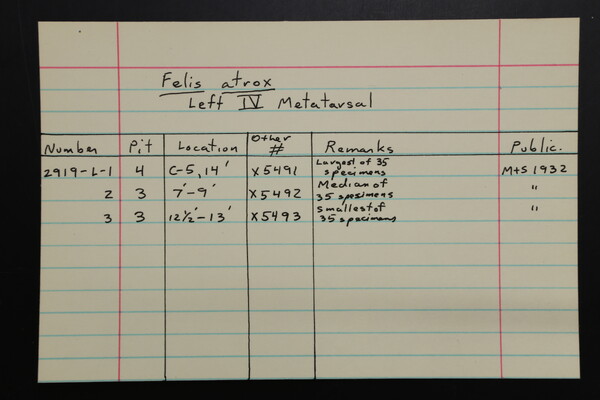 Felis atrox
Left IV Metatarsal
Number Pit Location Other # Remarks Public.
2919-L-1 4 C-5, 14' X5491 Largest of 35 specimens M+S 1932
2 3 7'-9' X5492 Median of 35 specimens "
3 3 12½'-13' X5493 Smallest of 35 specimens "